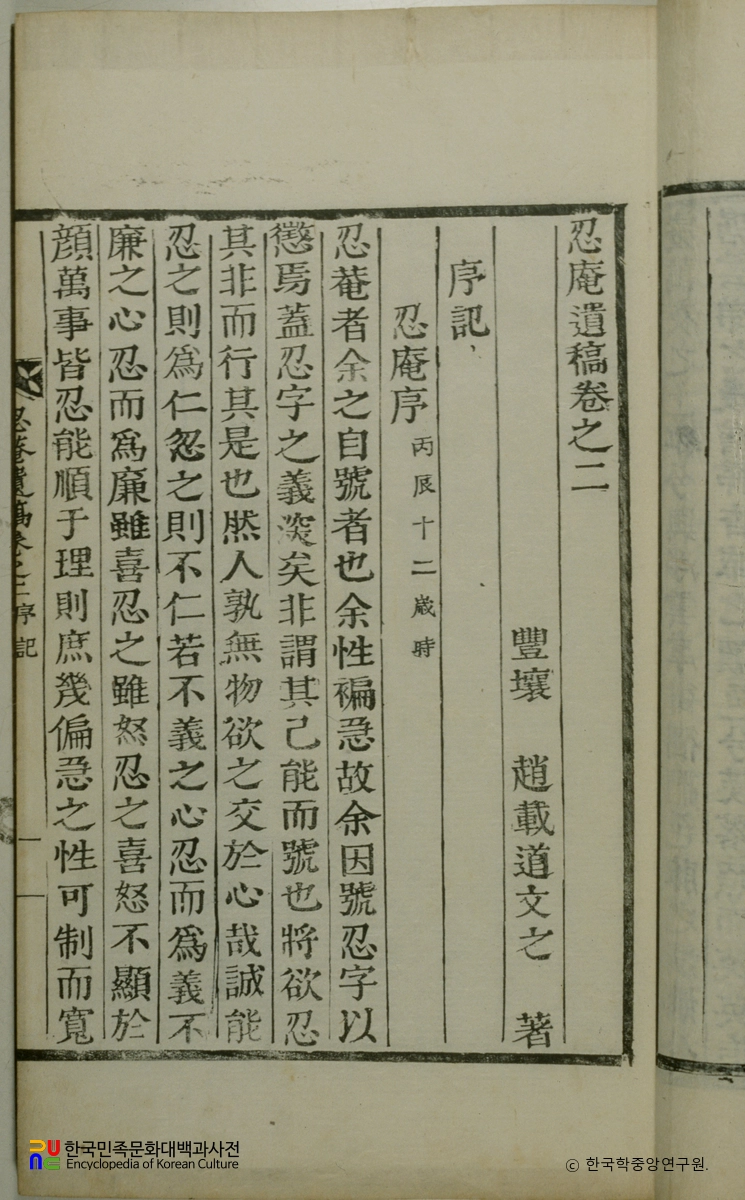 忍庵遺稿卷之二
豐壤 趙載道文之 著
序記
忍庵序 丙辰十二歲時
忍菴者余之自號者也余性褊急故余因號忍字以
懲焉蓋忍字之義深矣非謂其己能而號也將欲忍
其非而行其是也然人孰無物欲之交於心哉誠能
忍之則爲仁忽之則不仁若不義之心忍而爲義不
廉之心忍而爲廉雖喜忍之雖怒忍之喜怒不顯於
顔萬事皆忍能順于理則庶幾偏急之性可制而寬
忍菴遺稿卷之二 序記
한국민족문화대백과사전
Encyclopedia of Korean Culture
© 한국학중앙연구원.